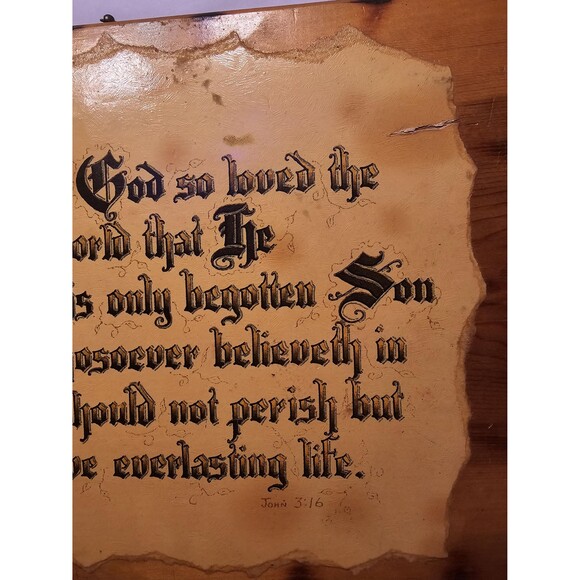 God so loved the
orld that He
s only begotten Son
osoever believeth in
hould not perish but
ve everlasting life.
John 3:16